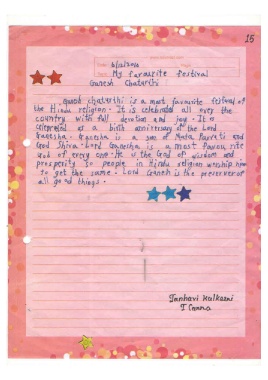 15
My favourite festival
Ganesh Chaturthi
Ganesh chaturthi is a most favourite festival of
the Hindu religion. It is celebrated all over the
country with full devotion and joy. It is
celebrated as a birth anniversary of the Lord
Ganesha. Ganesha is a son of Mata Parvati and
God Shiva. Lord Ganesha is a most Favourite
God of every one. He is the God of wisdom and
prosperity so people in Hindu religion worship him
to get the same. Lord Ganesh is the preserver of
all good things.
Tanhavi Kulkarni